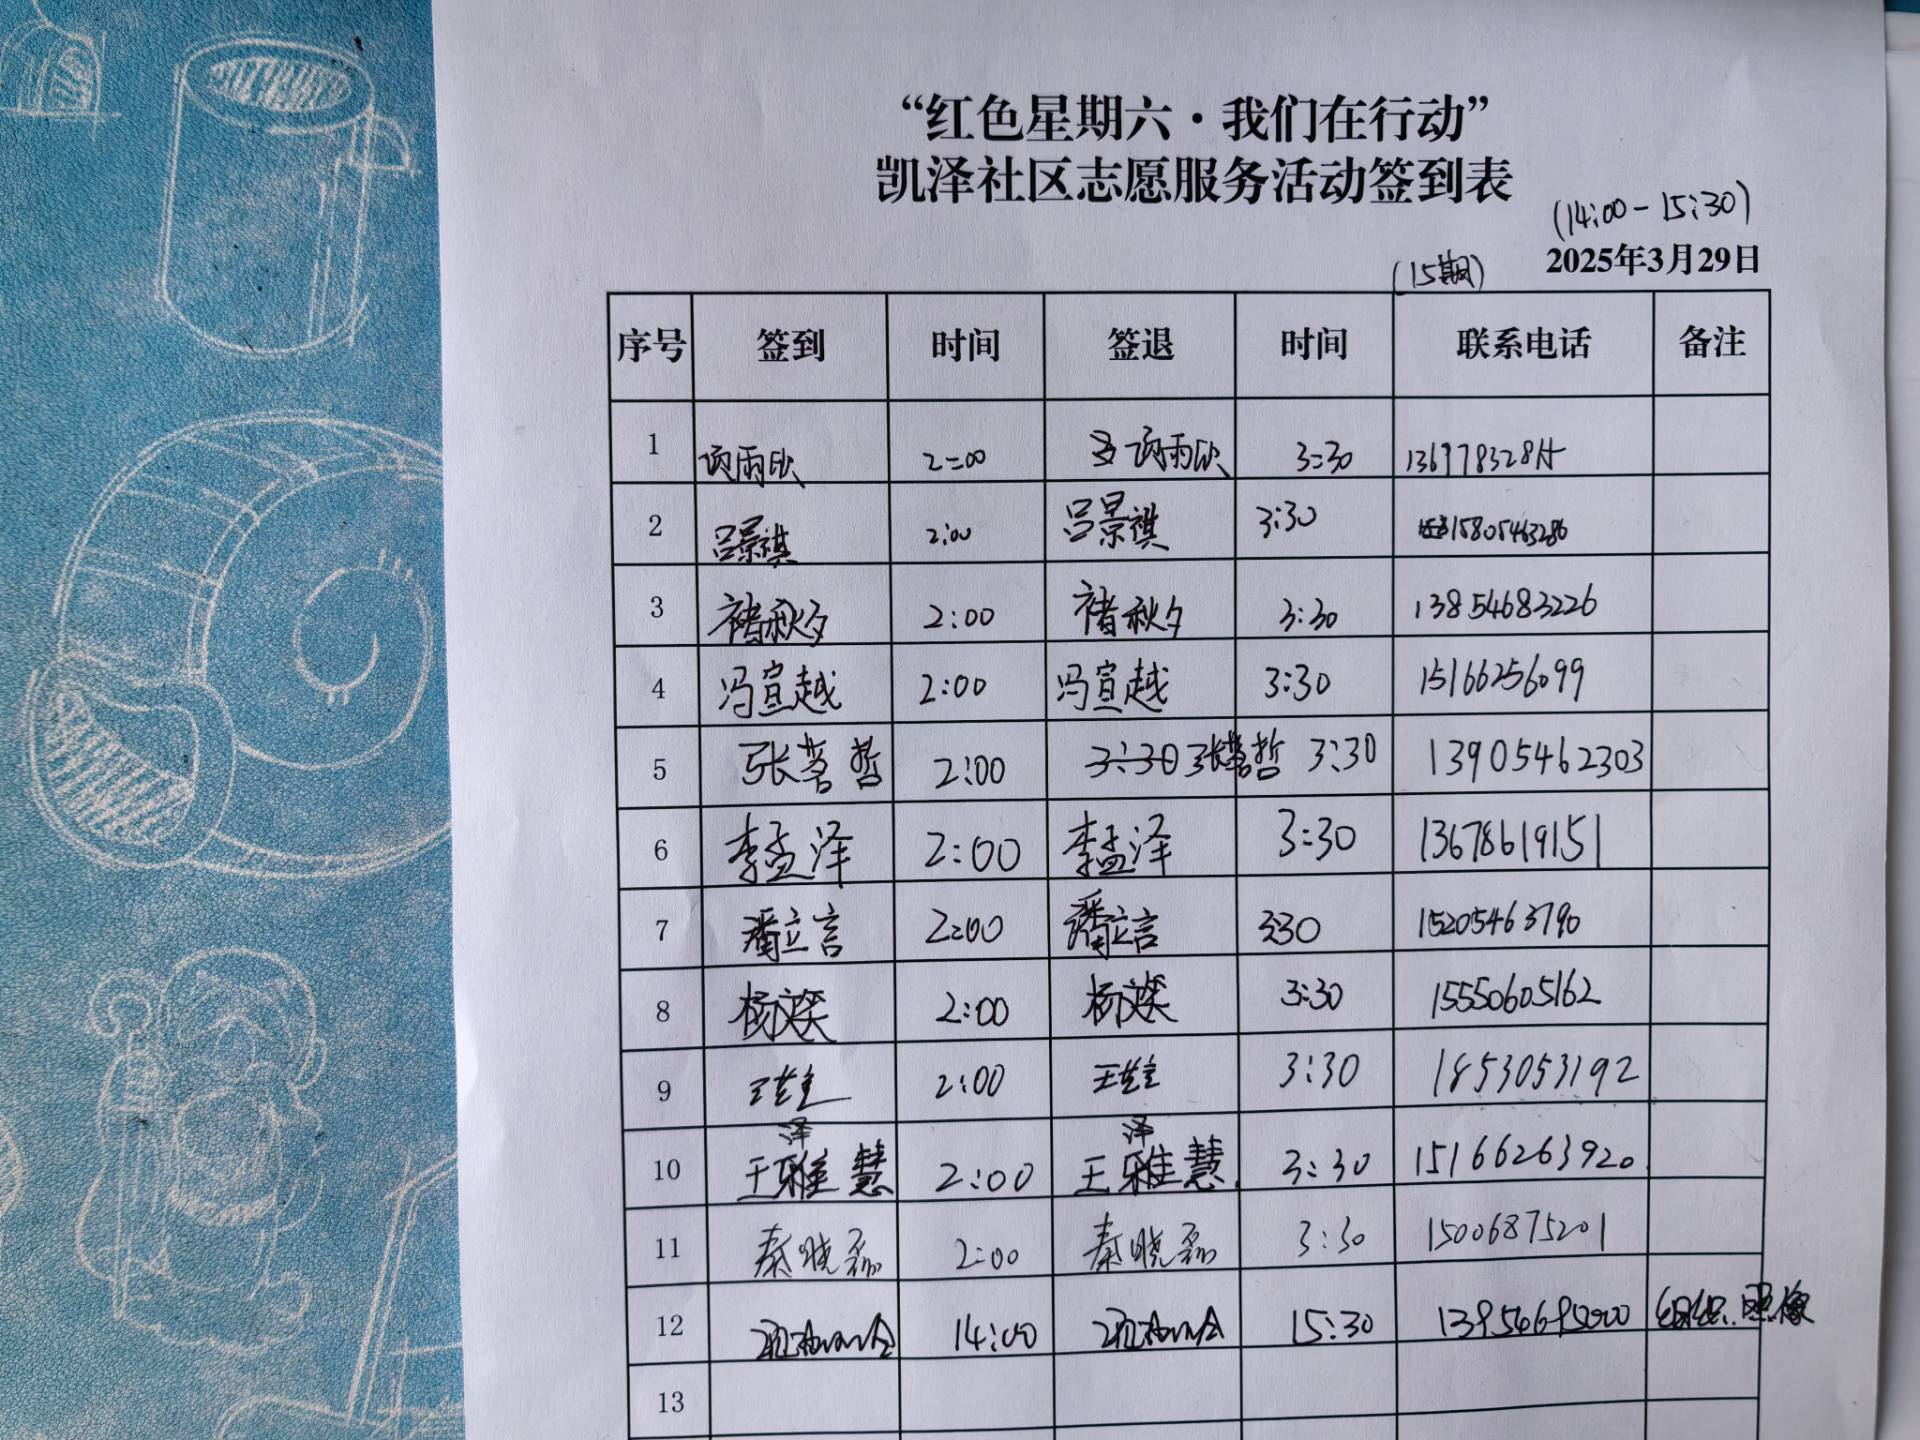 “红色星期六·我们在行动”
凯泽社区志愿服务活动签到表
(14:00-15:30)
(15期) 2025年3月29日
序号 签到 时间 签退 时间 联系电话 备注
1 雨欣 2:00 雨欣 3:30
2 吕景祺 2:00 吕景祺 3:30 15805463286
3 褚秋夕 2:00 褚秋夕 3:30 13854683226
4 冯宣越 2:00 冯宣越 3:30 15166256099
5 张茗哲 2:00 3:30 张茗哲 3:30 13905462303
6 李孟泽 2:00 李孟泽 3:30 13678619151
7 潘立言 2:00 潘立言 330 15205463790
8 杨 2:00 杨 3:30 15550605162
9 王 2:00 王 3:30 1853053192
10 王泽雅慧 2:00 王泽雅慧 3:30 15166263920
11 秦晓磊 2:00 秦晓磊 3:30 15006875201
12 14:00 15:30 组织、照像
13